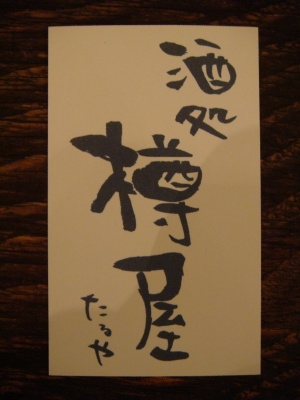 酒処
樽屋
たるや